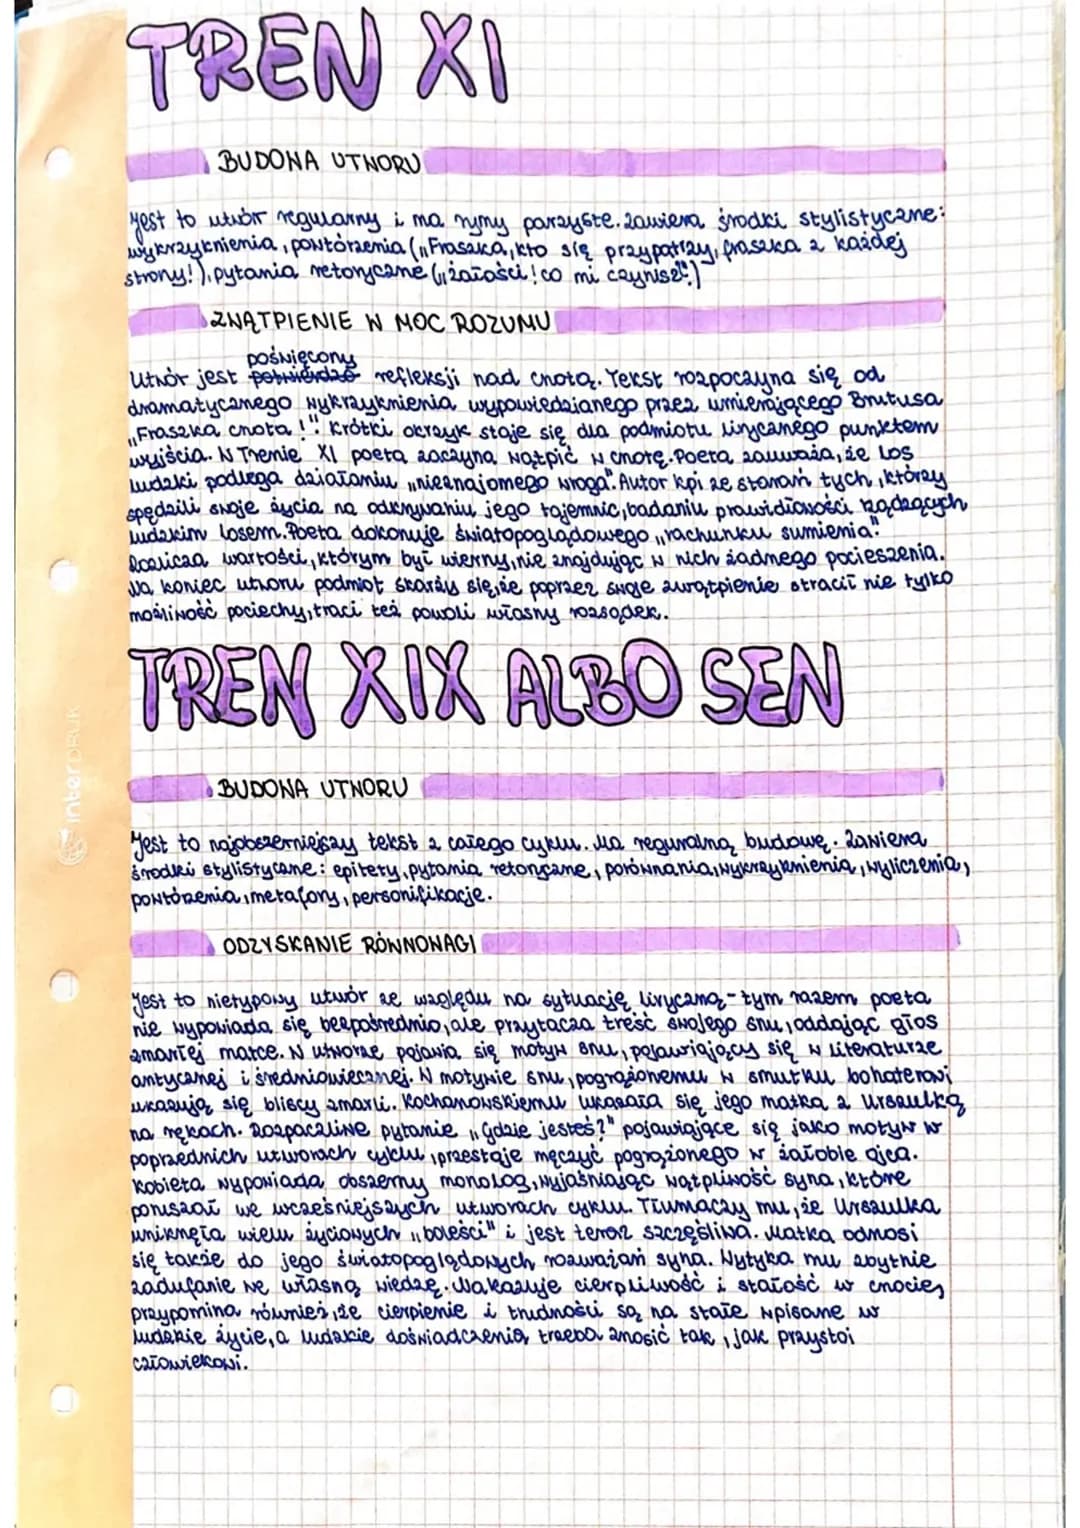 TREN XI
BUDOWA UTWORU
Jest to utwór regularny i ma rymy parzyste. Zawiera środki stylistyczne:
wykrzyknienia, powtórzenia („Fraszka, kto się przypatrzy, fraszka z każdej
strony!), pytania retoryczne („żałości! co mi czynisz?")
ZWĄTPIENIE W MOC ROZUMU
poświęcony
Utwór jest refleksji nad cnotą. Tekst rozpoczyna się od
dramatycznego wykrzyknienia wypowiedzianego przez umierającego Brutusa
„Fraszka cnota!". Krótki okrzyk staje się dla podmiotu lirycznego punktem
wyjścia. W Trenie XI poeta zaczyna wątpić w cnotę. Poeta zauważa, że los
ludzki podlega działaniu „nieznajomego wroga". Autor kpi ze starań tych, którzy
spędzili swoje życia na odkrywaniu jego tajemnic, badaniu prawidłowości rządzących
ludzkim losem. Poeta dokonuje światopoglądowego „rachunku sumienia".
Rozlicza wartości, którym był wierny, nie znajdując w nich żadnego pocieszenia.
Na koniec utworu podmiot skarży się, że poprzez swoje zwątpienie stracił nie tylko
możliwość pociechy, traci też powoli własny rozsądek.
TREN XIX ALBO SEN
BUDOWA UTWORU
Jest to najobszerniejszy tekst z całego cyklu. Ma reguralną budowę. Zawiera
środki stylistyczne: epitety, pytania retoryczne, porównania, wykrzyknienia, wyliczenia,
powtórzenia, metafory, personifikacje.
ODZYSKANIE RÓWNOWAGI
Jest to nietypowy utwór ze względu na sytuację liryczną - tym razem poeta
nie wypowiada się bezpośrednio, ale przytacza treść swojego snu, oddając głos
zmarłej matce. W utworze pojawia się motyw snu, pojawiający się w literaturze
antycznej i średniowiecznej. W motywie snu, pogrążonemu w smutku bohaterowi
ukazują się bliscy zmarli. Kochanowskiemu ukazała się jego matka z Urszulką
na rękach. Rozpaczliwe pytanie „Gdzie jesteś?" pojawiające się jako motyw w
poprzednich utworach cyklu, przestaje męczyć pogrążonego w żałobie ojca.
Kobieta wypowiada obszerny monolog, wyjaśniając wątpliwość syna, które
poruszał we wcześniejszych utworach cyklu. Tłumaczy mu, że Urszulka
uniknęła wielu życiowych „boleści" i jest teraz szczęśliwa. Matka odnosi
się także do jego światopoglądowych rozważań syna. Wytyka mu zbytnie
zadufanie we własną wiedzę. Nakazuje cierpliwość i stałość w cnocie,
przypomina również, że cierpienie i trudności są na stałe wpisane w
ludzkie życie, a ludzkie doświadczenia trzeba znosić tak, jak przystoi
człowiekowi.
interDRUK